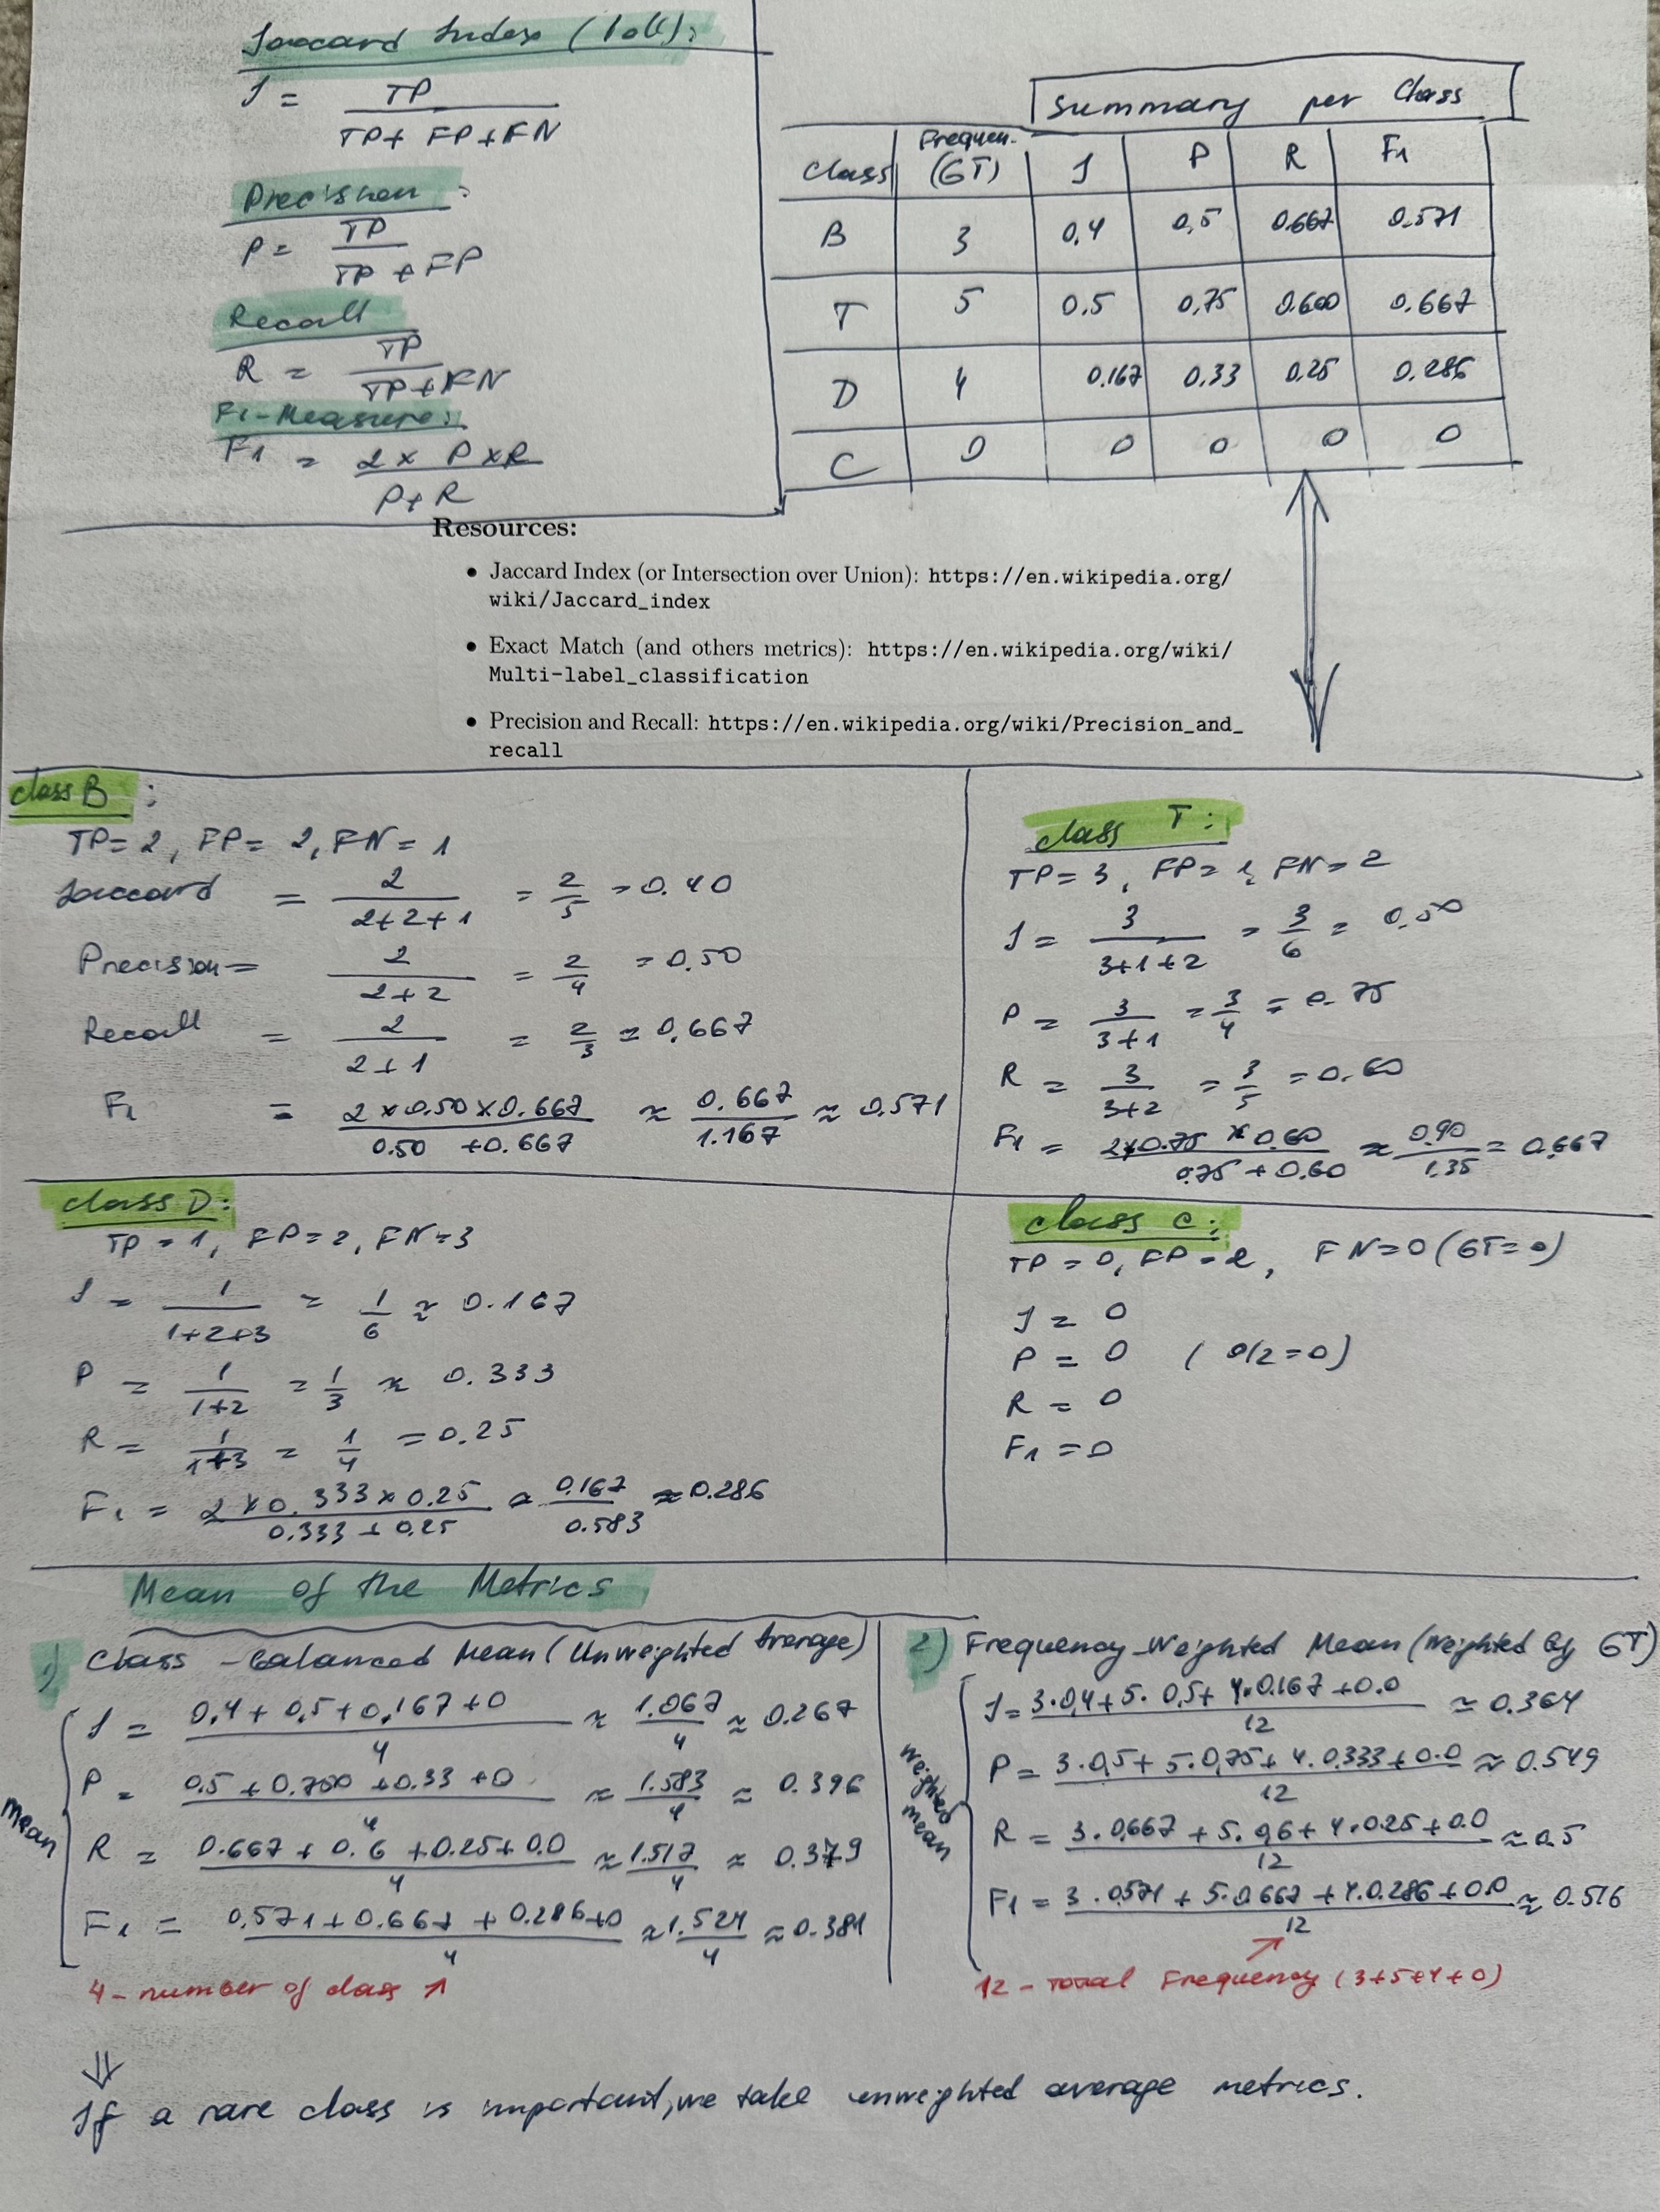 Jaccard Index (IoU):
J = TP / TP + FP + FN
Precision :
P = TP / TP + FP
Recall
R = TP / TP + FN
F1 - Measure:
F1 = 2 x P x R / P + R
Summary per Class
Class Frequen. (GT) J P R F1
B 3 0,4 0,5 0.667 0.571
T 5 0.5 0,75 0.600 0.667
D 4 0.167 0.33 0.25 0.286
C 0 0 0 0 0
Resources:
• Jaccard Index (or Intersection over Union): https://en.wikipedia.org/
wiki/Jaccard_index
• Exact Match (and others metrics): https://en.wikipedia.org/wiki/
Multi-label_classification
• Precision and Recall: https://en.wikipedia.org/wiki/Precision_and_
recall
class B :
TP = 2, FP = 2, FN = 1
Jaccard = 2 / 2+2+1 = 2/5 = 0.40
Precision = 2 / 2+2 = 2/4 = 0.50
Recall = 2 / 2+1 = 2/3 ≈ 0.667
F1 = 2 x 0.50 x 0.667 / 0.50 + 0.667 ≈ 0.667 / 1.167 ≈ 0.571
class T :
TP = 3, FP = 1, FN = 2
J = 3 / 3+1+2 = 3/6 = 0.50
P = 3 / 3+1 = 3/4 = 0.75
R = 3 / 3+2 = 3/5 = 0.60
F1 = 2x0.75 x 0.60 / 0.75 + 0.60 ≈ 0.90 / 1.35 = 0.667
class D:
TP = 1, FP = 2, FN = 3
J = 1 / 1+2+3 = 1/6 ≈ 0.167
P = 1 / 1+2 = 1/3 ≈ 0.333
R = 1 / 1+3 = 1/4 = 0.25
F1 = 2 x 0.333 x 0.25 / 0.333 + 0.25 ≈ 0.167 / 0.583 ≈ 0.286
class C:
TP = 0, FP = 2, FN = 0 (GT = 0)
J = 0
P = 0 ( 0/2 = 0)
R = 0
F1 = 0
Mean of the Metrics
1) Class - Balanced Mean (Unweighted Average)
mean
J = 0,4 + 0,5 + 0,167 + 0 / 4 ≈ 1.067 / 4 ≈ 0.267
P = 0.5 + 0.750 + 0.33 + 0 / 4 ≈ 1.583 / 4 ≈ 0.396
R = 0.667 + 0.6 + 0.25 + 0.0 / 4 ≈ 1.517 / 4 ≈ 0.379
F1 = 0.571 + 0.667 + 0.286 + 0 / 4 ≈ 1.524 / 4 ≈ 0.381
4 - number of class ↑
2) Frequency-Weighted Mean (Weighted by GT)
weighted mean
J = 3·0,4 + 5·0,5 + 4·0.167 + 0.0 / 12 ≈ 0.364
P = 3·0,5 + 5·0,75 + 4·0.333 + 0.0 / 12 ≈ 0.549
R = 3·0.667 + 5·0,6 + 4·0.25 + 0.0 / 12 ≈ 0.5
F1 = 3·0.571 + 5·0.667 + 4·0.286 + 0.0 / 12 ≈ 0.516
12 - total Frequency (3+5+4+0)
⇓
If a rare class is important, we take unweighted average metrics.